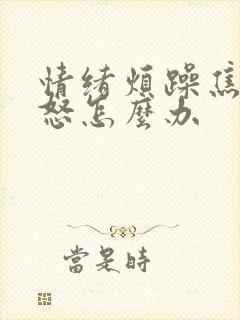 情绪煩躁焦
怒怎麼办
當是時